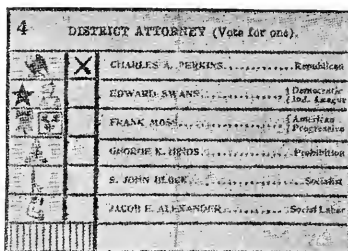 4 DISTRICT ATTORNEY (Vote for one).
CHARLES A. PERKINS Republican
EDWARD SWANN Democratic
Ind. League
FRANK MOSS American
Progressive
GEORGE K. HINDS Prohibition
S. JOHN BLOCK Socialist
JACOB E. ALEXANDER Social Labor